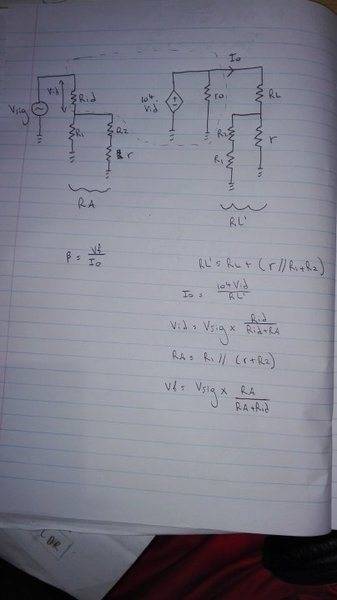 Io
Vid
Rid
Vsig
R1
R2
r
RA
10^4 Vid
ro
RL
R2
R1
r
RL'
β = Vf/Io
RL' = RL + (r // R1+R2)
Io = 10^4 Vid/RL'
Vid = Vsig x Rid/Rid+RA
RA = R1 // (r+R2)
Vf = Vsig x RA/RA+Rid